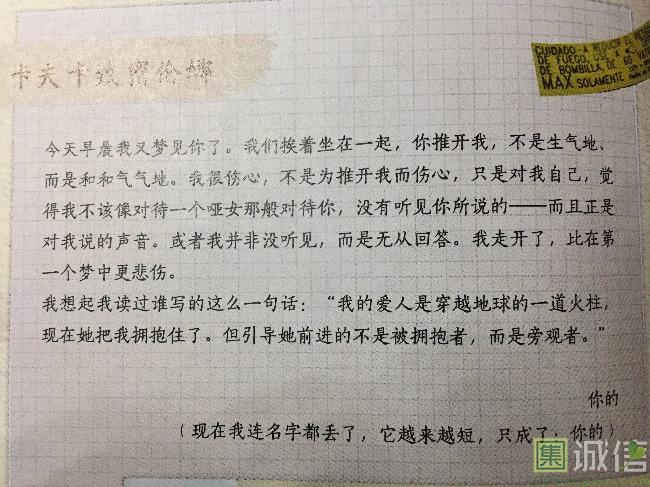 卡夫卡致密伦娜
CUIDADO-A REDUCIR EL
DE FUEGO, USE A
DE BOMBILLA, DE 60 VAT
MAX SOLAMENTE
今天早晨我又梦见你了。我们挨着坐在一起，你推开我，不是生气地、
而是和和气气地。我很伤心，不是为推开我而伤心，只是对我自己，觉
得我不该像对待一个哑女那般对待你，没有听见你所说的——而且正是
对我说的声音。或者我并非没听见，而是无从回答。我走开了，比在第
一个梦中更悲伤。
我想起我读过谁写的这么一句话：“我的爱人是穿越地球的一道火柱，
现在她把我拥抱住了。但引导她前进的不是被拥抱者，而是旁观者。”
你的
（现在我连名字都丢了，它越来越短，只成了：你的）
集诚信